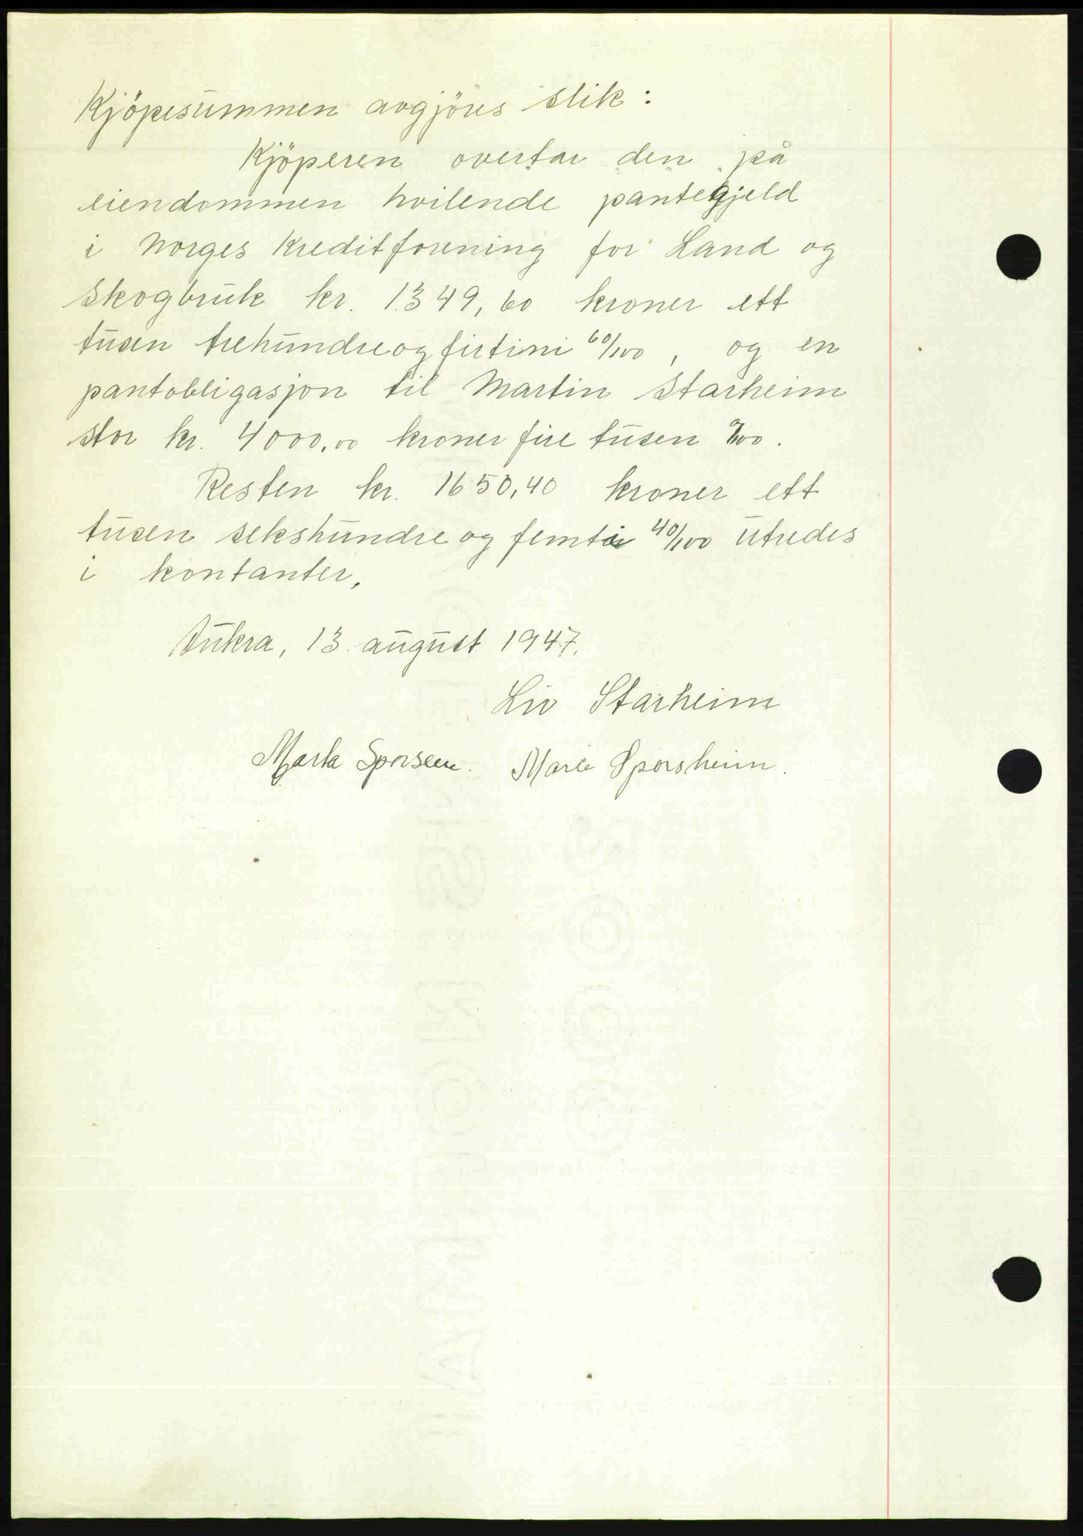 Kjöpesummen avgjöres slik:
Kjöperen overtar den på
eiendommen hvilende pantegjeld
i Norges Kreditforening for Land og
Skogbruk kr. 1349,60 kroner ett
tusen trehundreogfirtini 60/100, og en
pantobligasjon til Martin Starheim
stor kr. 4000,00 kroner fire tusen 0/00.
Resten kr. 1650,40 kroner ett
tusen sekshundre og femti 40/100 utredes
i kontanter,
Aukra, 13. august 1947.
Liv Starheim
Marta Sporsem. Marie Sporsheim.